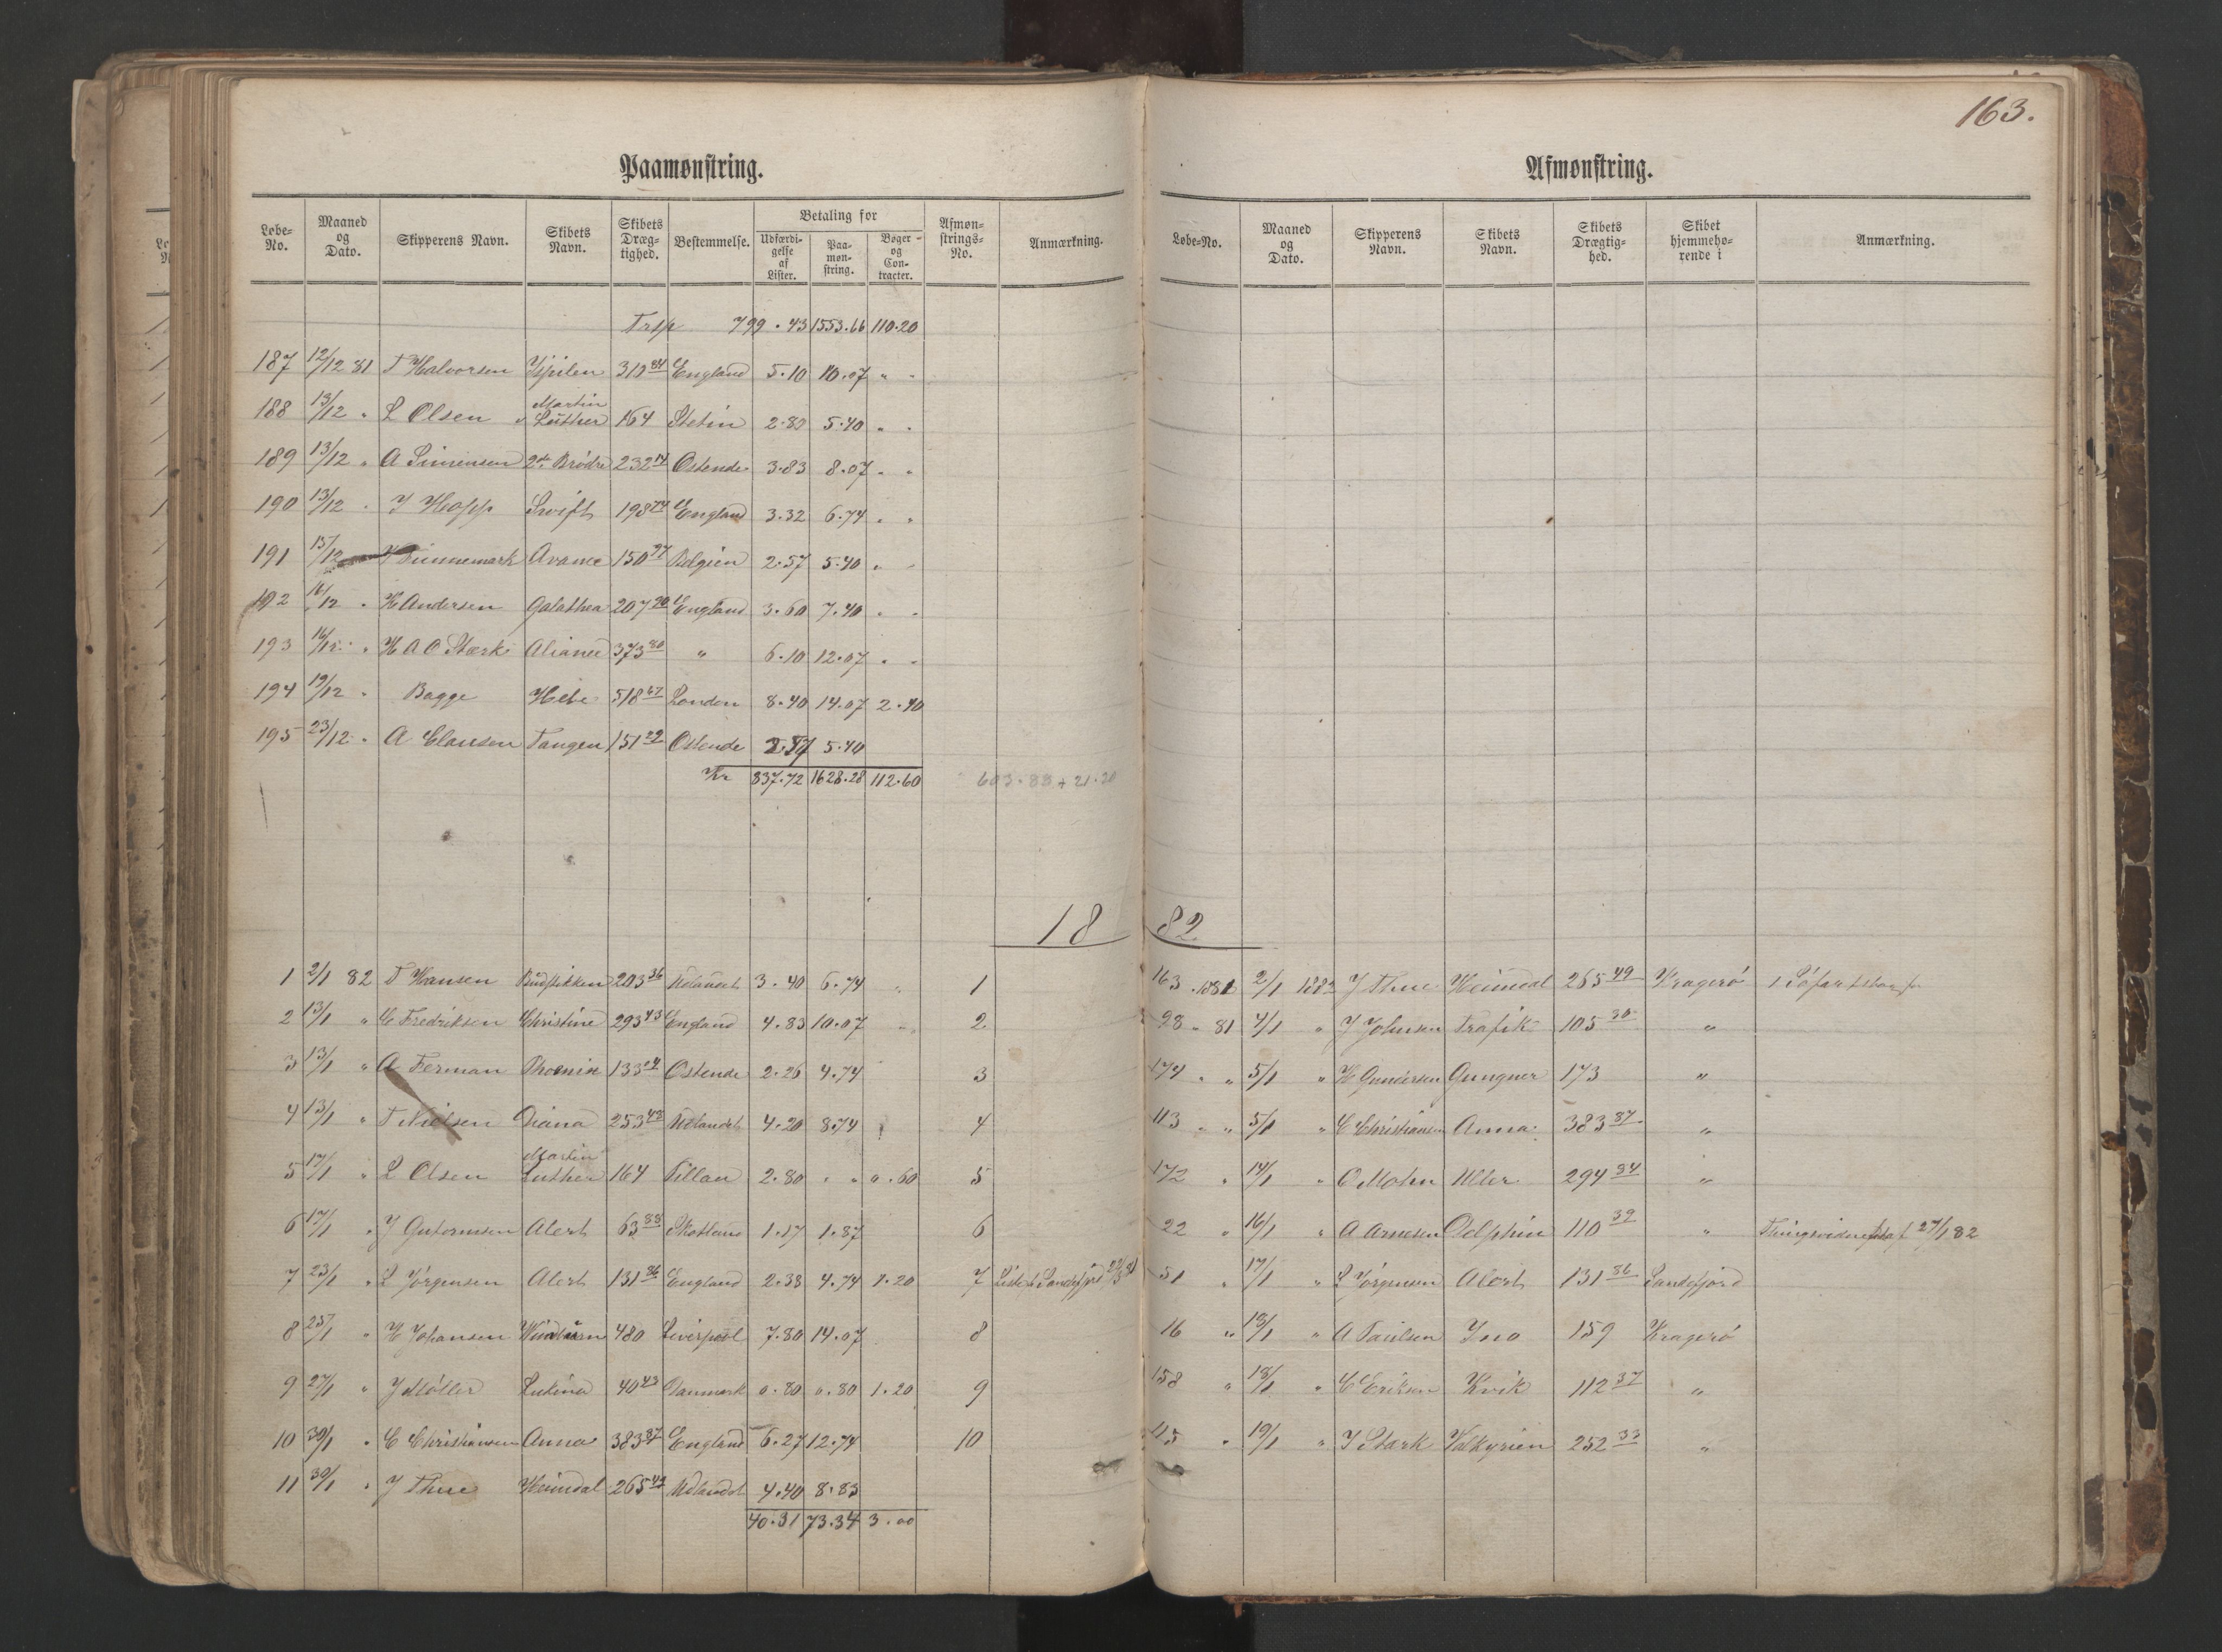 163.
Paamønstring.
Løbe-No. Maaned og Dato. Skipperens Navn. Skibets Navn. Skibets Dræg-tighed. Bestemmelse. Betaling for Udfærdi-gelse af Lister. Paa-møn-string. Bøger og Con-tracter. Afmøn-strings-No. Anmærkning.
799.43 1553.66 110.20
187 12/12 81 T Halvorsen 319 84 England 5.10 10.07 " "
188 13/12 " L Olsen Martin Luther 164 Stetin 2.80 5.40 " "
189 13/12 " A Simensen 2de Brödre 232 14 Ostende 3.83 8.07 " "
190 13/12 " J Hopp Swift 198 74 England 3.32 6.74 " "
191 15/12 Avance 150 97 Belgien 2.57 5.40 " "
192 16/12 " H Andersen Galathea 207 20 England 3.60 7.40 " "
193 16/12 " H A O Stærk Aliance 373 80 " 6.10 12.07 " "
194 19/12 " Bagge Hebe 518 67 London 8.40 14.07 2.40
195 23/12 " A Clausen Tangen 151 22 Ostende 2.57 5.40
Kr 837.72 1628.28 112.60 603.83 + 21.20
18
1 2/1 82 T Hansen Budstikken 203 36 Udlandet 3.40 6.74 " 1
2 13/1 " C Fredriksen Christine 293 43 England 4.83 10.07 " 2
3 13/1 " A Ferman Phoenix 133 24 Ostende 2.26 4.74 3
4 13/1 " T Nielsen Diana 253 43 Udlandet 4.20 8.74 4
5 17/1 " L Olsen Martin Luther 164 Pillau 2.80 " " 0.60 5
6 17/1 " J Gutormsen Alert 63 88 Skotland 1.17 1.87 6
7 23/1 " L Jörgensen Alert 131 86 England 2.38 4.74 1.20 7 Liste Sandefjord
8 25/1 " H Johansen 480 Liverpool 7.80 14.07 8
9 27/1 " J Möller 40 43 Danmark 0.80 0.80 1.20 9
10 30/1 " C Christiansen Anna 383 87 England 6.27 12.74 10
11 30/1 " J Thue Heimdal 265 49 Udlandet 4.40 8.83
40.31 73.34 3.00
Afmønstring.
Løbe-No. Maaned og Dato. Skipperens Navn. Skibets Navn. Skibets Drægtig-hed. Skibet hjemmehø-rende i Anmærkning.
82
163 1881 2/1 1882 J Thue Heimdal 265 49 Kragerö
98 " 81 4/1 " J Johnsen Trafik 105 30 "
174 " " 5/1 " H Gundersen Gungner 173 "
113 " " 5/1 " C Christiansen Anna 383 87 "
172 " 14/1 " O Mohn Uller 294 34 "
22 " 16/1 " A Arnesen Delphin 110 39 " 27/1 82
51 " 17/1 " L Jörgensen Alert 131 86 Sandefjord
16 " 18/1 " A Paulsen Ino 159 Kragerö
158 " 18/1 " C Eriksen Kvik 112 37 "
115 " 19/1 " J Stark Valkyrien 252 33 "